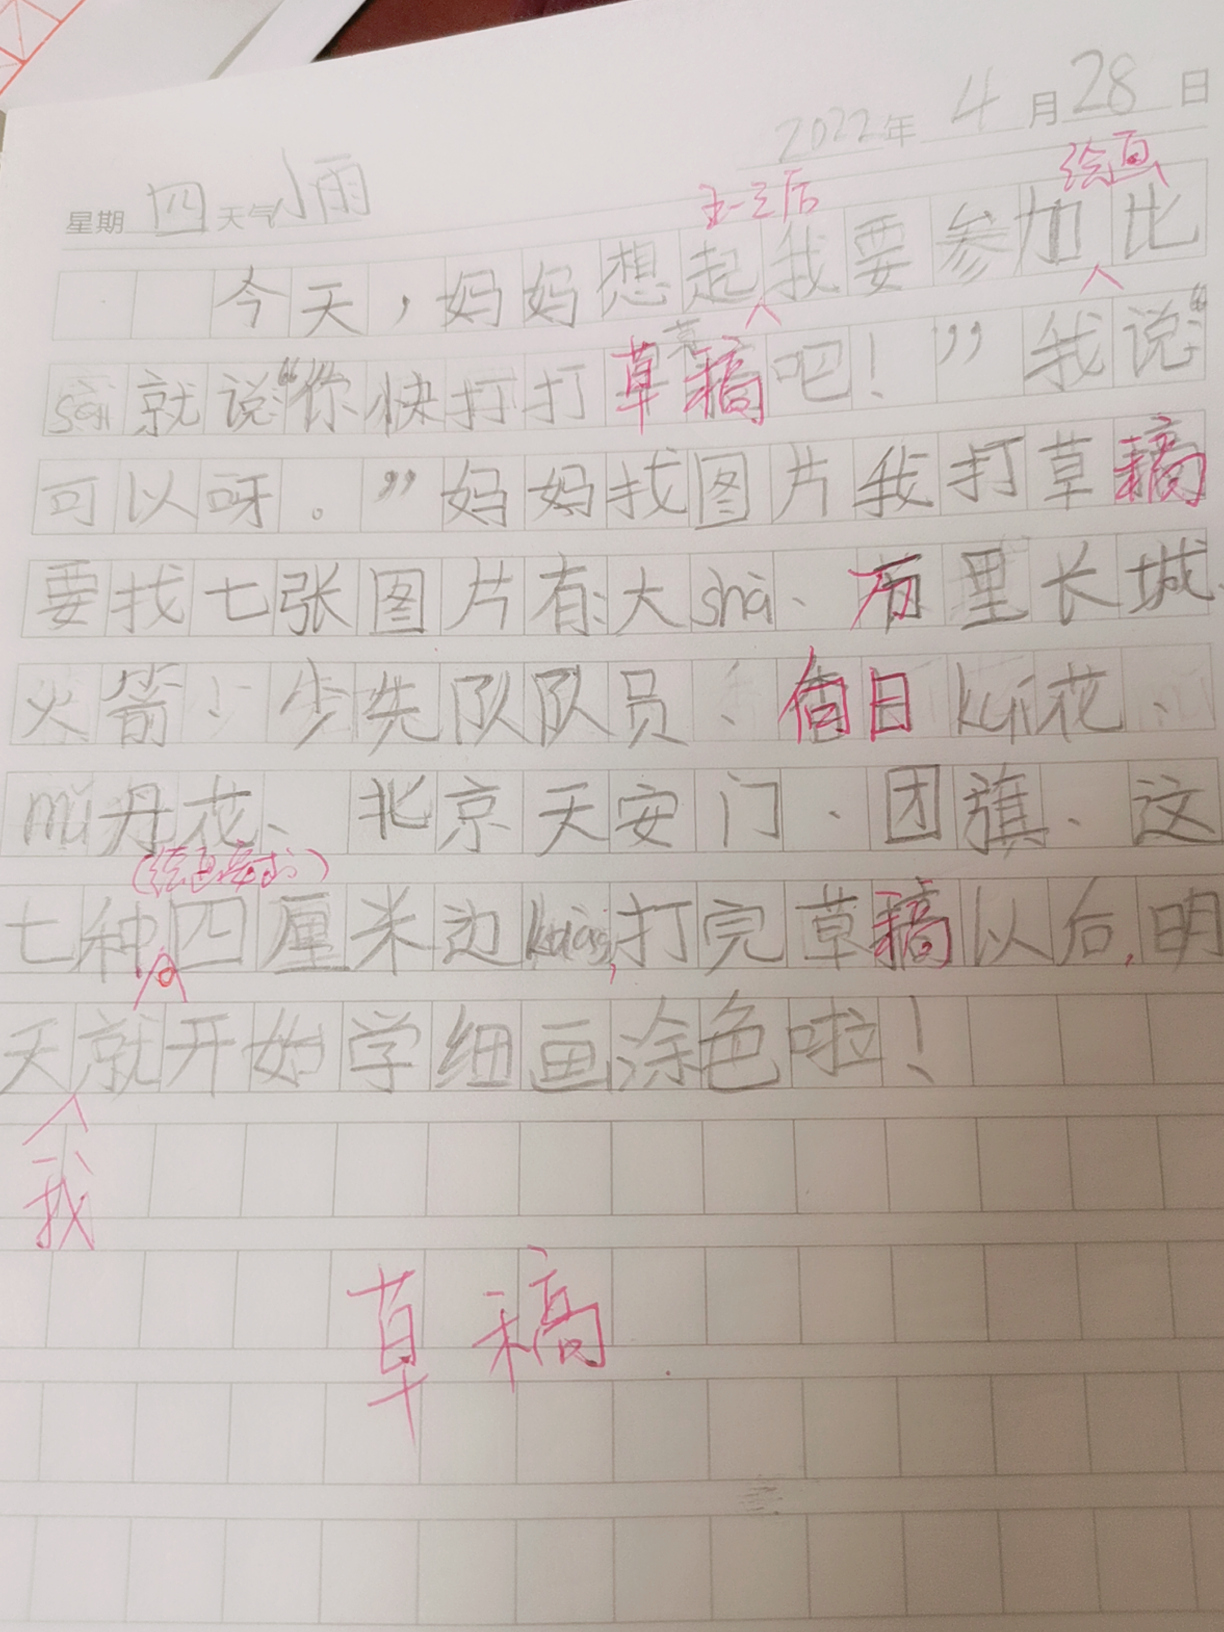 2022年 4月28日
星期 四 天气 小雨
五一之后 绘画
今天，妈妈想起我要参加比
sài就说“你快打打草稿吧！”我说：“
可以呀。”妈妈找图片我打草稿
要找七张图片有：大shà、万里长城
火箭、少先队队员、向日kuí花、
mǔ丹花、北京天安门、团旗、这
(绘画要求)
七种四厘米边kuàng，打完草稿以后，明
天就开始学细画涂色啦！
我
草稿